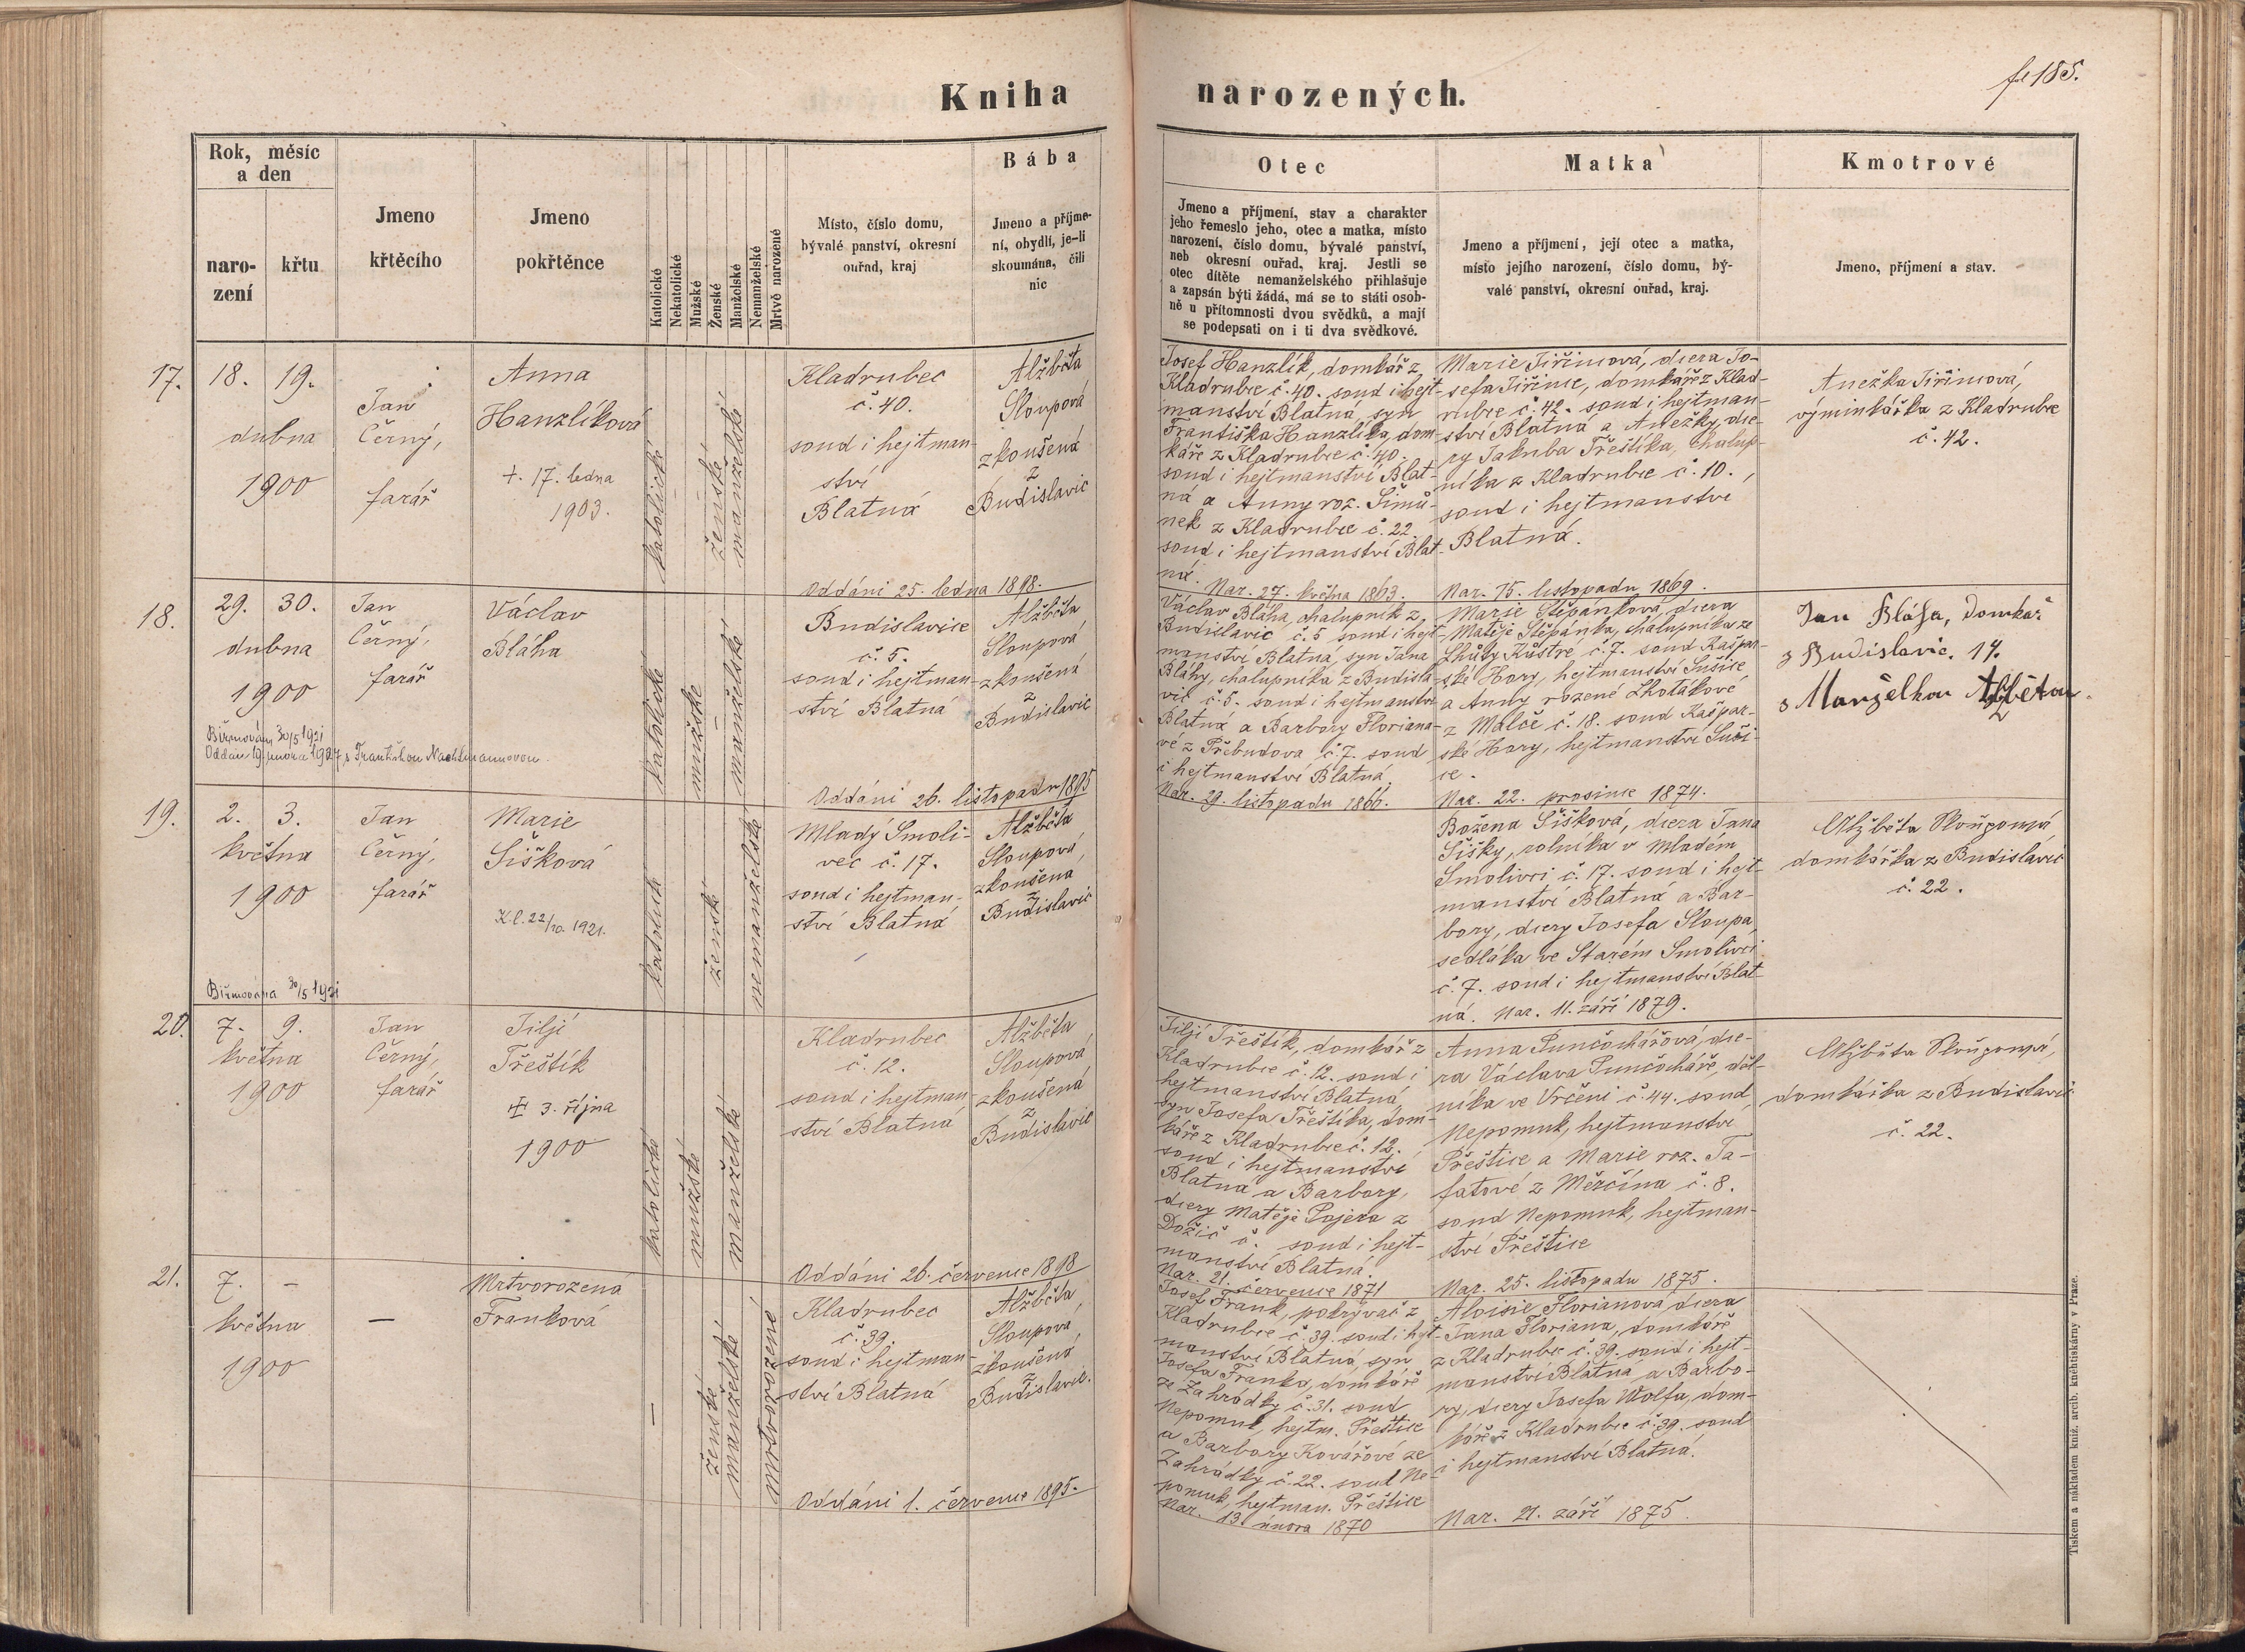 Kniha narozených.
fol 185.
Rok, měsíc
a den
naro-
zení
křtu
Jmeno
křtěcího
Jmeno
pokřtěnce
Katolické
Nekatolické
Mužské
Ženské
Manželské
Nemanželské
Mrtvě narozené
Místo, číslo domu,
bývalé panství, okresní
ouřad, kraj
Bába
Jmeno a příjme-
ní, obydlí, je-li
skoumána, čili
nic
Otec
Jmeno a příjmení, stav a charakter
jeho řemeslo jeho, otec a matka, místo
narození, číslo domu, bývalé panství,
neb okresní ouřad, kraj. Jestli se
otec dítěte nemanželského přihlašuje
a zapsán býti žádá, má se to státi osob-
ně u přítomnosti dvou svědků, a mají
se podepsati on i ti dva svědkové.
Matka
Jmeno a příjmení, její otec a matka,
místo jejího narození, číslo domu, bý-
valé panství, okresní ouřad, kraj.
Kmotrové
Jmeno, příjmení a stav.
17.
18. 19.
dubna
1900
Jan
Černý,
farář
Anna
Hanzlíková
+. 17. ledna
1903.
katolické
ženské
manželské
Kladrubec
č. 40.
soud i hejtman-
ství
Blatná
Oddáni 25. ledna 1898.
Alžběta
Sloupová
zkoušená
z
Budislavic
Josef Hanzlík, domkář z
Kladrubce č. 40. soud i hejt-
manství Blatná, syn
Františka Hanzlíka, dom-
káře z Kladrubce č. 40.
soud i hejtmanství Blat-
ná a Anny roz. Šimů-
nek z Kladrubce č. 22.
soud i hejtmanství Blat-
ná.
Nar. 27. května 1863.
Marie Jiřincová, dcera Jo-
sefa Jiřince, domkáře z Klad-
rubce č. 42. soud i hejtman-
ství Blatná a Anežky, dce-
ry Jakuba Třeštíka, chalup-
níka z Kladrubce č. 10.,
soud i hejtmanství
Blatná.
Nar. 15. listopadu 1869.
Anežka Jiřincová,
výminkářka z Kladrubce
č. 42.
18.
29. 30.
dubna
1900
Biřmován 30/5 1921
Oddán 19. února 1927 s Františkou Nachtmannovou.
Jan
Černý,
farář
Václav
Bláha
katolické
mužské
manželské
Budislavice
č. 5.
soud i hejtman-
ství Blatná
Oddáni 26. listopadu 1895
Alžběta
Sloupová
zkoušená
z
Budislavic
Václav Bláha, chalupník z
Budislavic č. 5 soud i hejt-
manství Blatná, syn Jana
Bláhy, chalupníka z Budisla-
vic č. 5. soud i hejtmanství
Blatná a Barbory Floriano-
vé z Přebudova č. 7. soud
i hejtmanství Blatná.
Nar. 29. listopadu 1866.
Marie Štěpánková, dcera
Matěje Štěpánka, chalupníka ze
Lhůty č. 7. soud Kašpar-
ské Hory, hejtmanství Sušice
a Anny rozené Lhotákové
z Malče č. 18. soud Kašpar-
ské Hory, hejtmanství Suši-
ce.
Nar. 22. prosince 1874.
Jan Bláha, domkař
z Budislavic. 14.
s Manželkou Alžbětou.
19.
2. 3.
května
1900
Biřmována 30/5 1921
Jan
Černý,
farář
Marie
Šišková
K.l. 22/10. 1921.
katolické
ženské
nemanželské
Mladý Smoli-
vec č. 17.
soud i hejtman-
ství Blatná
Alžběta
Sloupová,
zkoušená
z
Budislavic
Božena Šišková, dcera Jana
Šišky, rolníka v Mladém
Smolivci č. 17. soud i hejt-
manství Blatná a Bar-
bory, dcery Josefa Sloupa,
sedláka ve Starém Smolivci
č. 7. soud i hejtmanství Blat-
ná. Nar. 11. září 1879.
Alžběta Sloupová
domkářka z Budislavic
č. 22.
20.
7. 9.
května
1900
Jan
Černý,
farář
Jiljí
Třeštík
+ 3. října
1900
katolické
mužské
manželské
Kladrubec
č. 12.
soud i hejtman-
ství Blatná
Oddáni 26. července 1898
Alžběta
Sloupová,
zkoušená
z
Budislavic
Jiljí Třeštík, domkář z
Kladrubce č. 12. soud i
hejtmanství Blatná
syn Josefa Třeštíka, dom-
káře z Kladrubce č. 12.
soud i hejtmanství
Blatná a Barbory,
dcery Matěje Pajera z
Dožic č. soud i hejt-
manství Blatná.
Nar. 21. července 1871
Anna Punčochářová, dce-
ra Václava Punčocháře, děl-
níka ve Vrčeni č. 44. soud
Nepomuk, hejtmanství
Přeštice a Marie roz. Ta-
fatové z Měrčína č. 8.
soud Nepomuk, hejtman-
ství Přeštice
Nar. 25. listopadu 1875.
Alžběta Sloupová,
domkářka z Budislavic
č. 22.
21.
7. –
května
1900
–
Mrtvorozená
Franková
–
ženské
manželské
mrtvorozené
Kladrubec
č. 39.
soud i hejtman-
ství Blatná
Oddáni 1. července 1895.
Alžběta
Sloupová,
zkoušená
z
Budislavic.
Josef Frank, pokrývač z
Kladrubce č. 39. soud i hejt-
manství Blatná, syn
Josefa Franka, domkáře
ze Zahrádky č. 31. soud
Nepomuk, hejtm. Přeštice
a Barbory Kovářové ze
Zahrádky č. 22. soud Ne-
pomuk, hejtman. Přeštice
Nar. 13. února 1870
Aloisie Florianová, dcera
Jana Floriana, domkáře
z Kladrubec č. 39. soud i hejt-
manství Blatná, a Barbo-
ry, dcery Josefa Wolfa, dom-
káře z Kladrubce č. 39. soud
i hejtmanství Blatná.
Nar. 21. září 1875.
Tiskem a nákladem kníž. arcib. knihtiskárny v Praze.